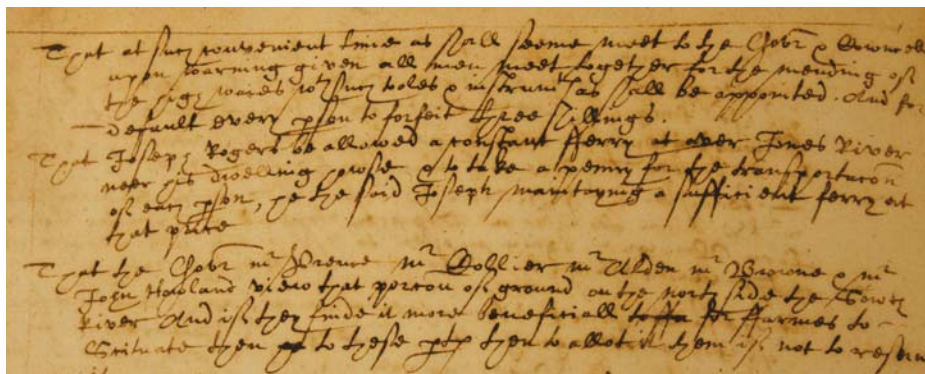 That at such convenient time as shall seeme meet to the Govr & Councell
upon warning given all men meet together for the mending of
the high waies wth such tooles & instrumts as shall be appointed. And for
default every pson to forfeit three shillings.
That Joseph Rogers be allowed a constant fferry at over Jones River
neer his dwelling house & to take a penny for the transportacōn
of each pson, he the said Joseph maintayning a sufficient ferry at
that place
That the Govr mr Prence mr Collier mr Alden mr Browne & mr
John Howland view that porcōn of ground on the north side the South
River And if they finde it more beneficiall for ffarmes to
Scituate then to these pts then to allot it them if not to reserve